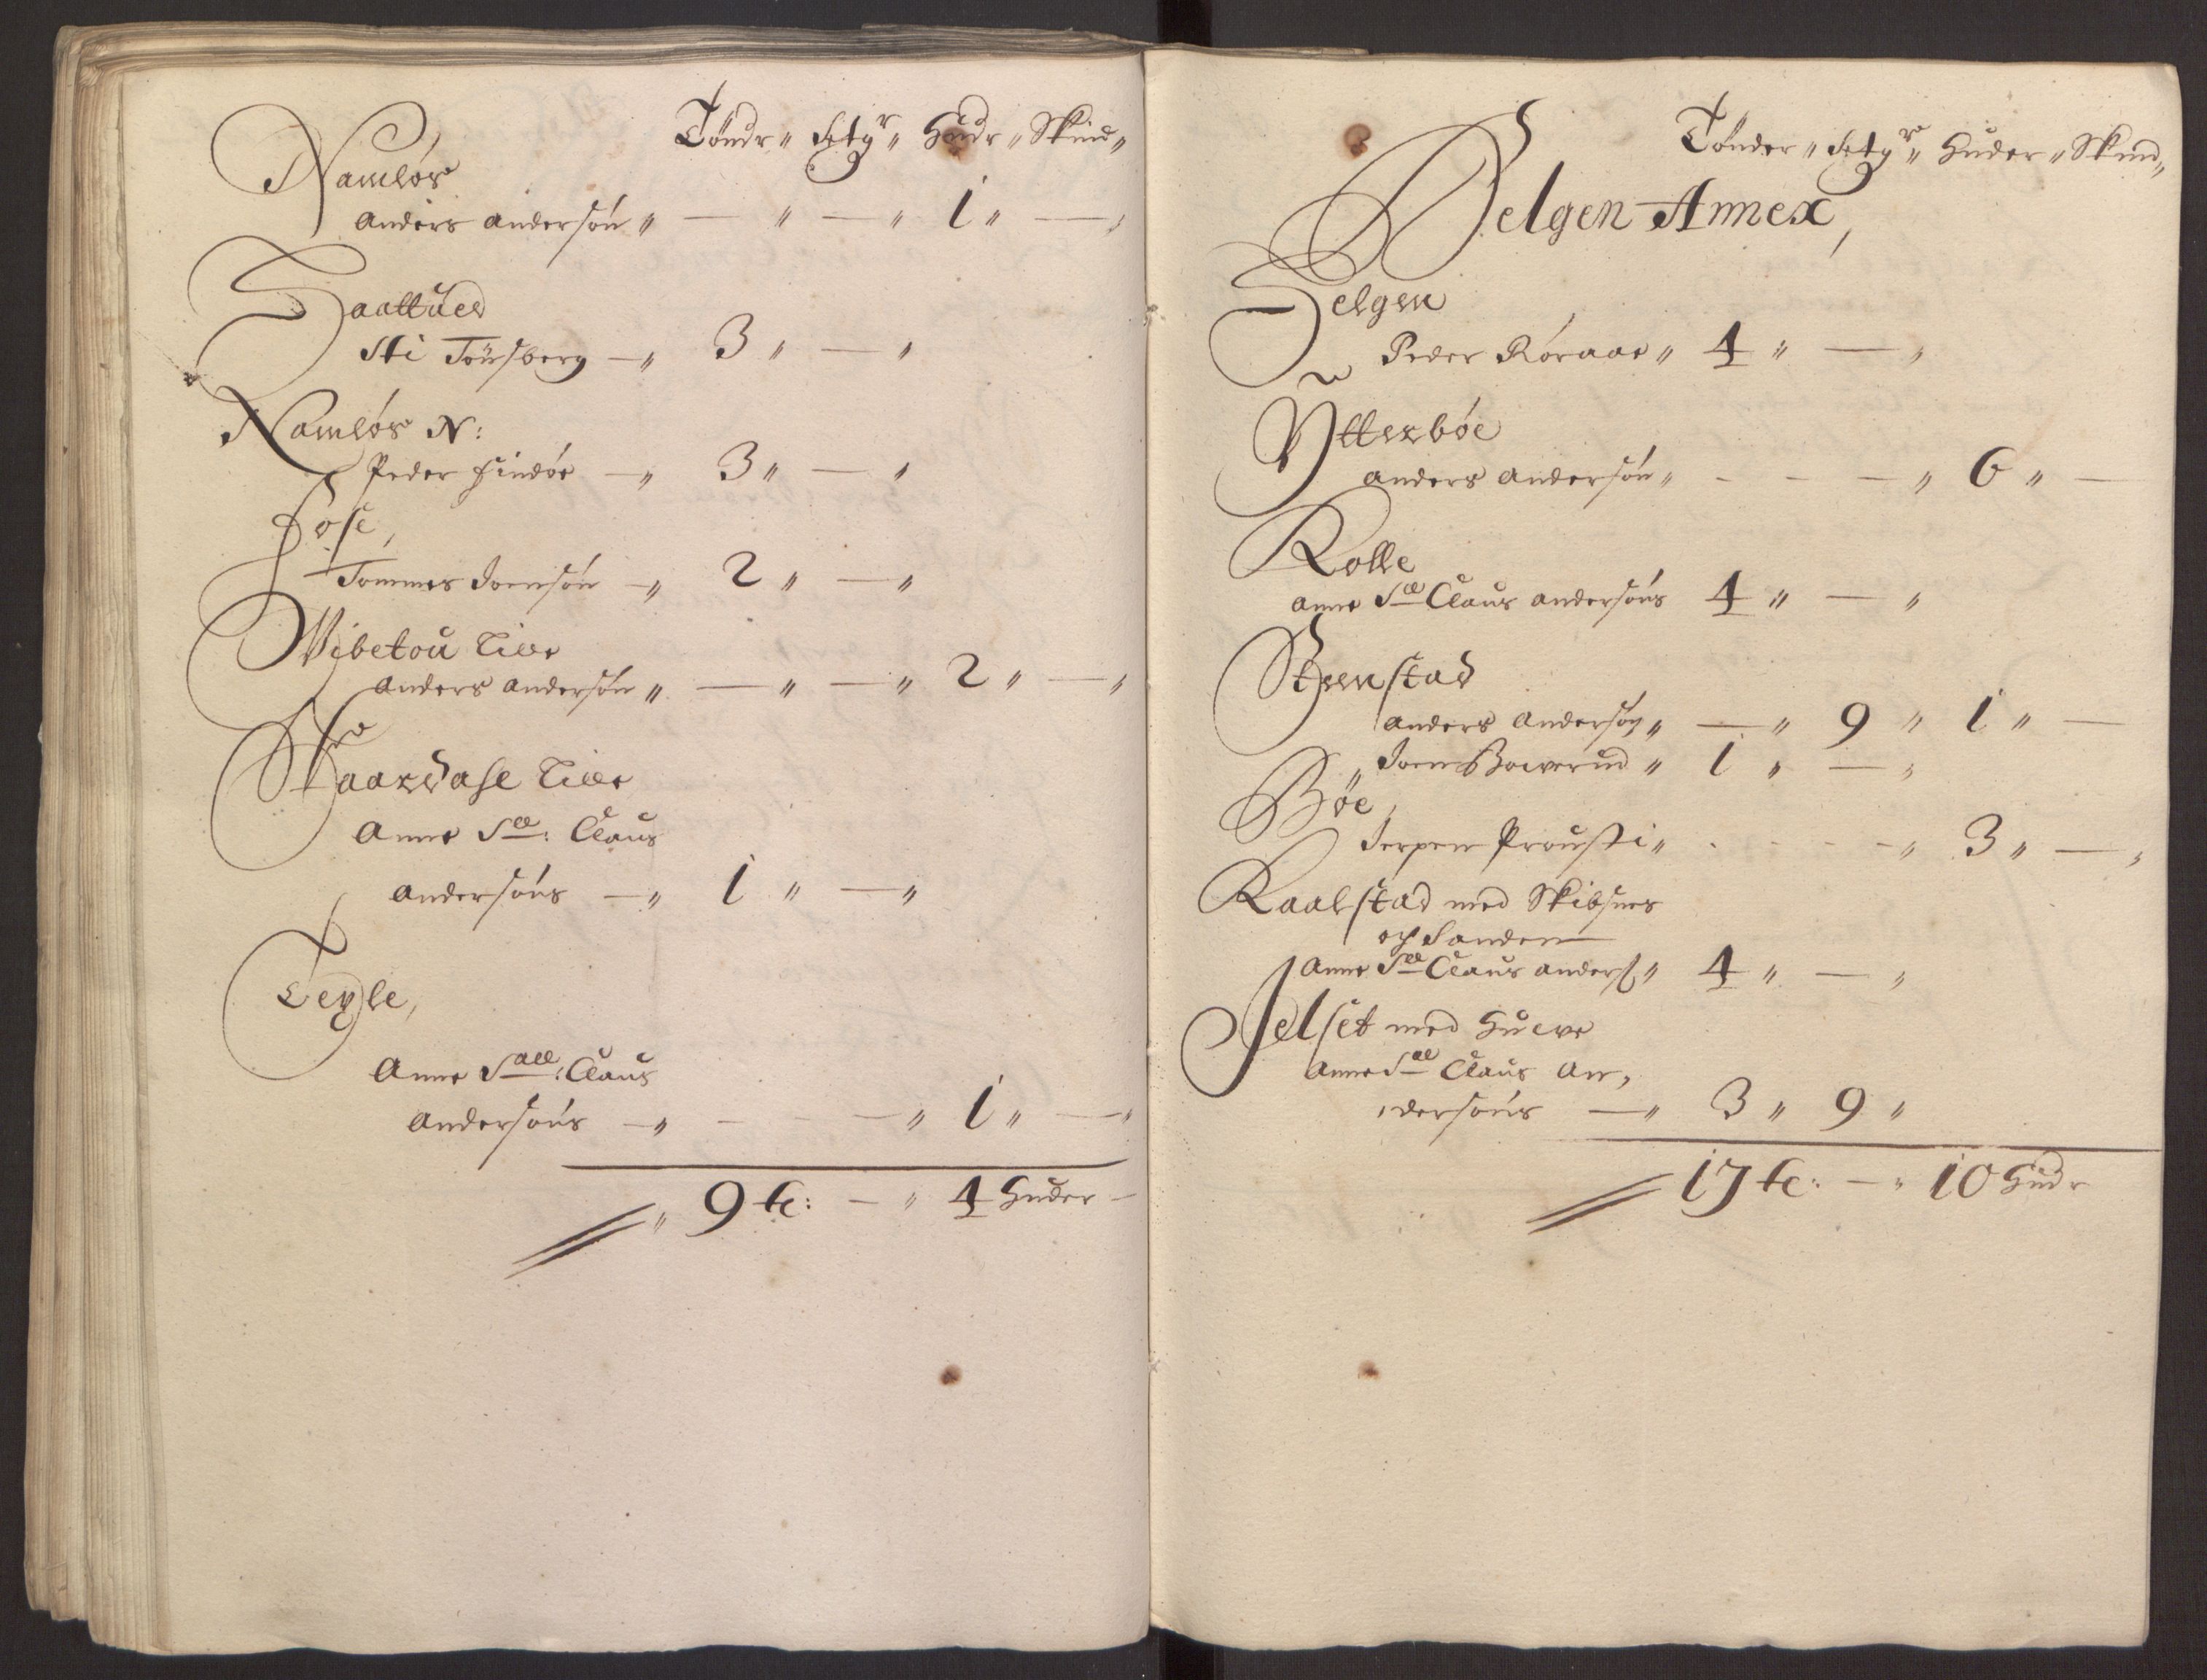 Töndr " Setgr " Hudr " Skind "
Namløs
Anders Andersøn " — " — " 1 " —
Saattued
Sti Tönsberg — " 3 " — "
Namløs N:
Peder Findøe — " 3 " — "
Fose,
Tommes Joensøn — " 2 " — "
Vibetou Lille
Anders Andersøn " — " — " 2 " — "
Skaardase Lille
Anne Sl: Claus
Andersøns — " 1 " — "
Teyle,
Anne Sall: Claus
Andersøns — " - - — " 1 " — "
" 9 tr: — " 4 Huder —
Tönder " Setgr " Huder " Skind "
Helgen Annex,
Helgen
Peder Röraae " 4 " — "
Ytterbøe
Anders Andersøn " - - — " 6 " —
Kolle
Anne Sl Claus Andersøns 4 " — "
Steenstad
Anders Andersøn " — " 9 " 1 " —
" Joen Bowerud " 1 " — "
Bøe,
Jerpen Prousti " - - - - " 3 " — "
Raalstad med Skibsnes
og Sanden
Anne Sl Claus Anders: " 4 " — "
Jelset med Hueve
Anne Sl Claus An,
,dersøns — " 3 " 9 "
17 tr: — " 10 Hudr